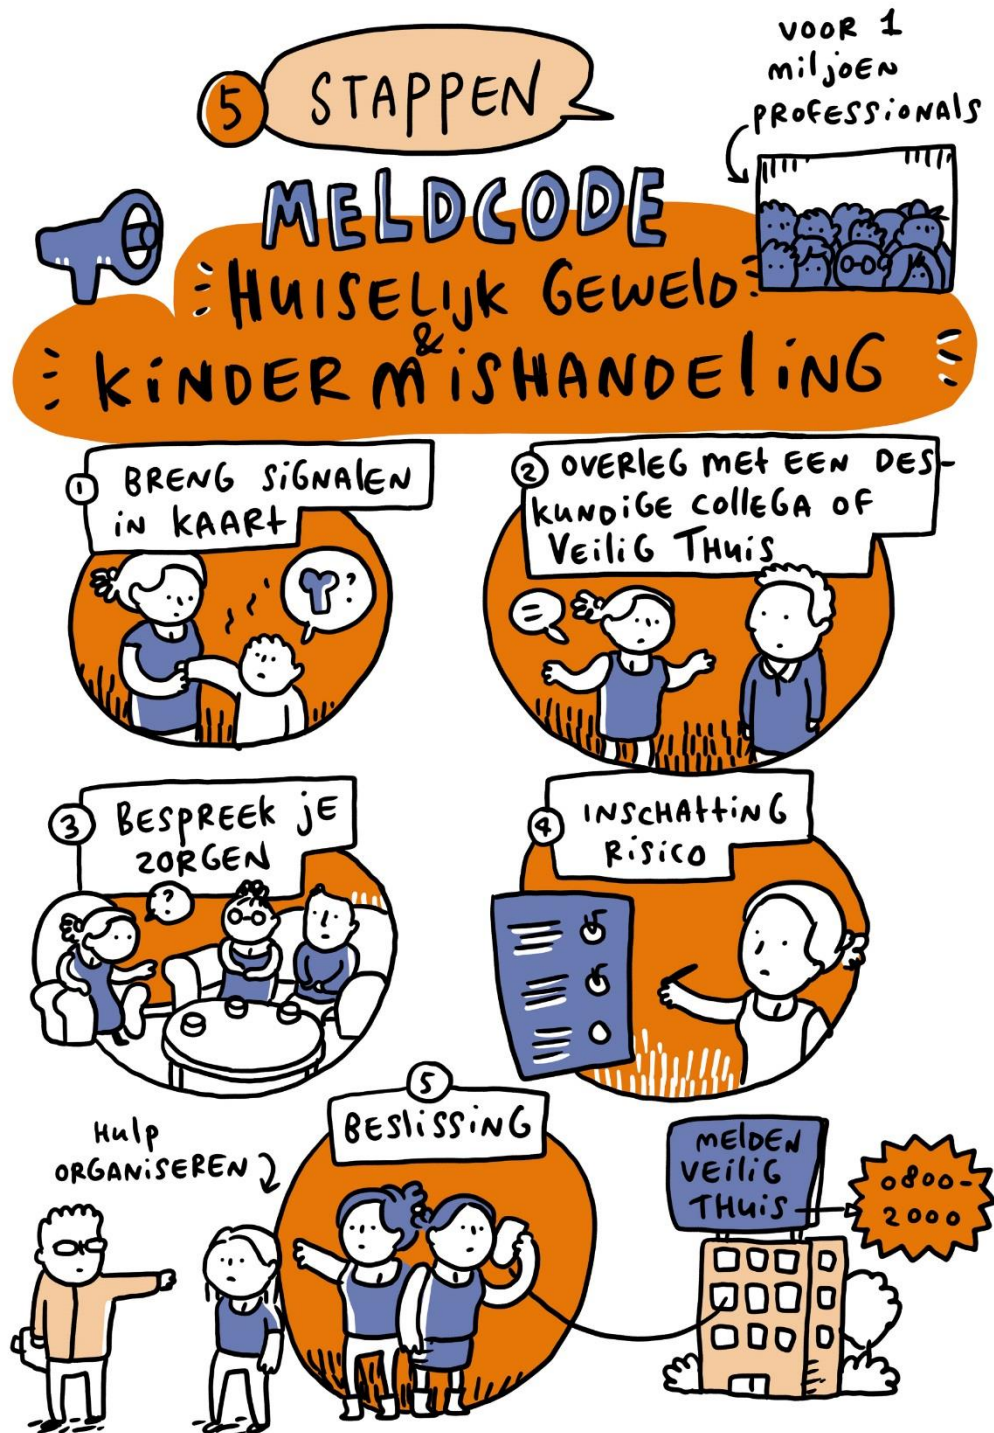 5 STAPPEN
VOOR 1
miljoen
professionals
MELDCODE
HUISELIJK GEWELD
&
KINDERMISHANDELING
1 BRENG SIGNALEN
IN KAART
?
2 OVERLEG MET EEN DES-
KUNDIGE COLLEGA OF
VEILIG THUIS
3 BESPREEK JE
ZORGEN
?
4 INSCHATTING
RISICO
5
BESLISSING
Hulp
ORGANISEREN
MELDEN
VEILIG
THUIS
0800-
2000